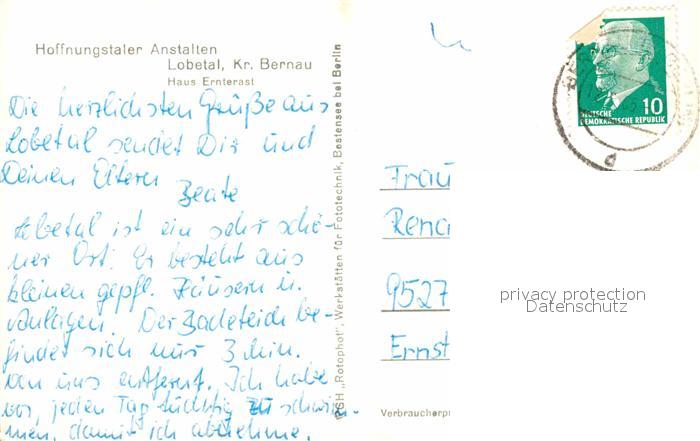 Hoffnungstaler Anstalten
Lobetal, Kr. Bernau
Haus Ernterast
Die herzlichsten Grüße aus
Lobetal sendet Dir und
Deinen Eltern
Beate
Lobetal ist ein sehr schö-
ner Ort. Er besteht aus
kleinen gepfl. Häusern u.
Anlagen. Der Badeteich be-
findet sich nur 3 Min.
von uns entfernt. Ich habe
vor, jeden Tag tüchtig zu schwim-
men, damit ich abnehme.
PGH „Rotophot", Werkstätten für Fototechnik, Bestensee bei Berlin
10
DEUTSCHE
DEMOKRATISCHE REPUBLIK
Frau
Rena
9527
Ernst
privacy protection
Datenschutz
Verbraucherpr